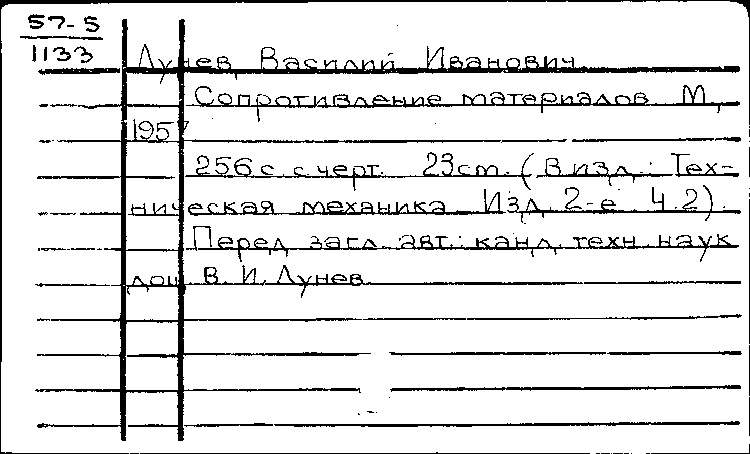 57-5
1133
Лунев, Василий Иванович.
Сопротивление материалов. М.,
1957
256 с. с черт. 23 cm. (В изд.: Тех-
ническая механика. Изд. 2-е. Ч.2).
Перед загл. авт.: канд. техн. наук
доц. В. И. Лунев.